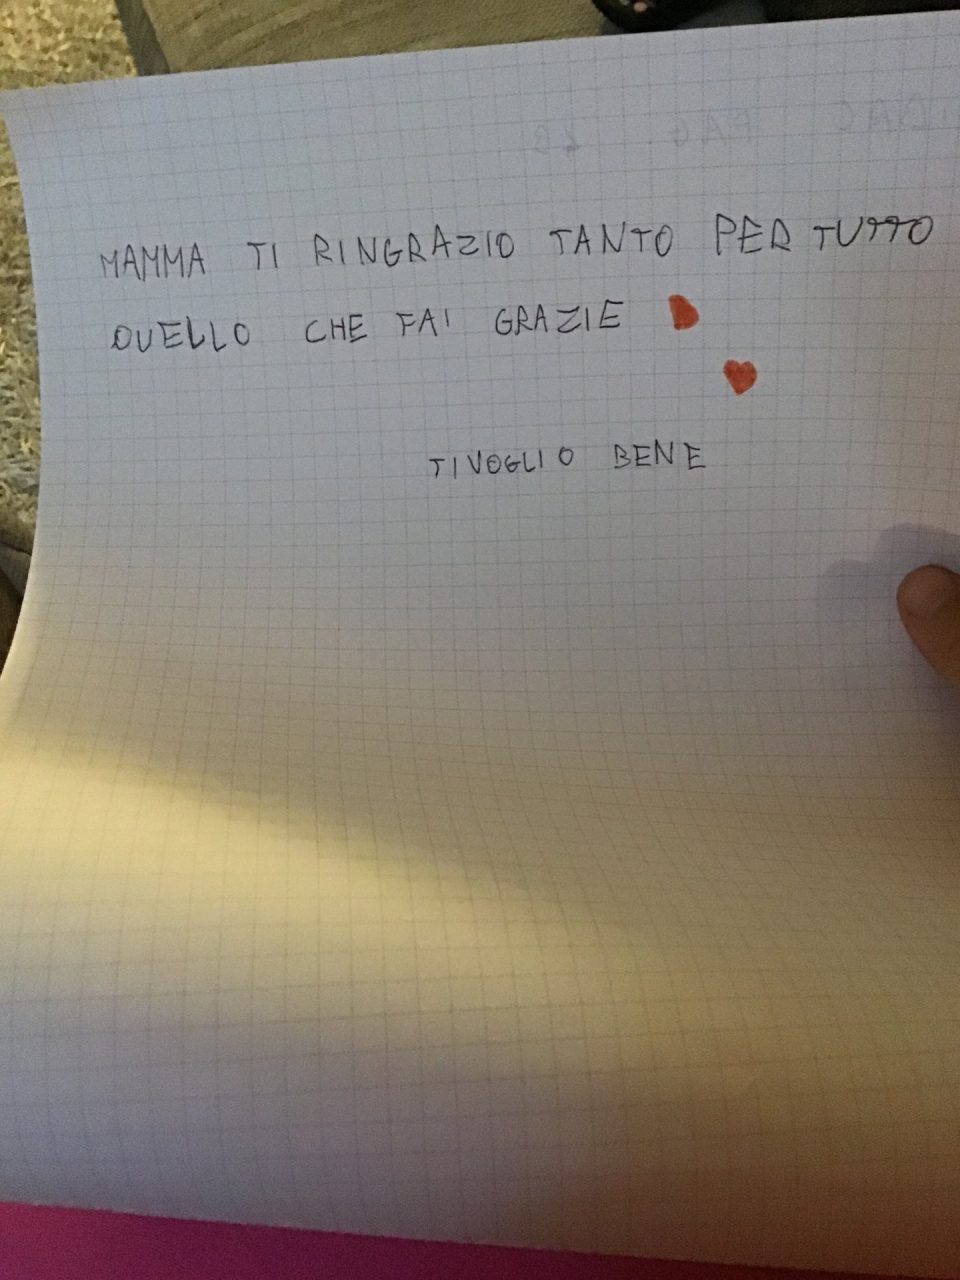 MAMMA TI RINGRAZIO TANTO PER TUTTO
QUELLO CHE FAI GRAZIE
TI VOGLIO BENE